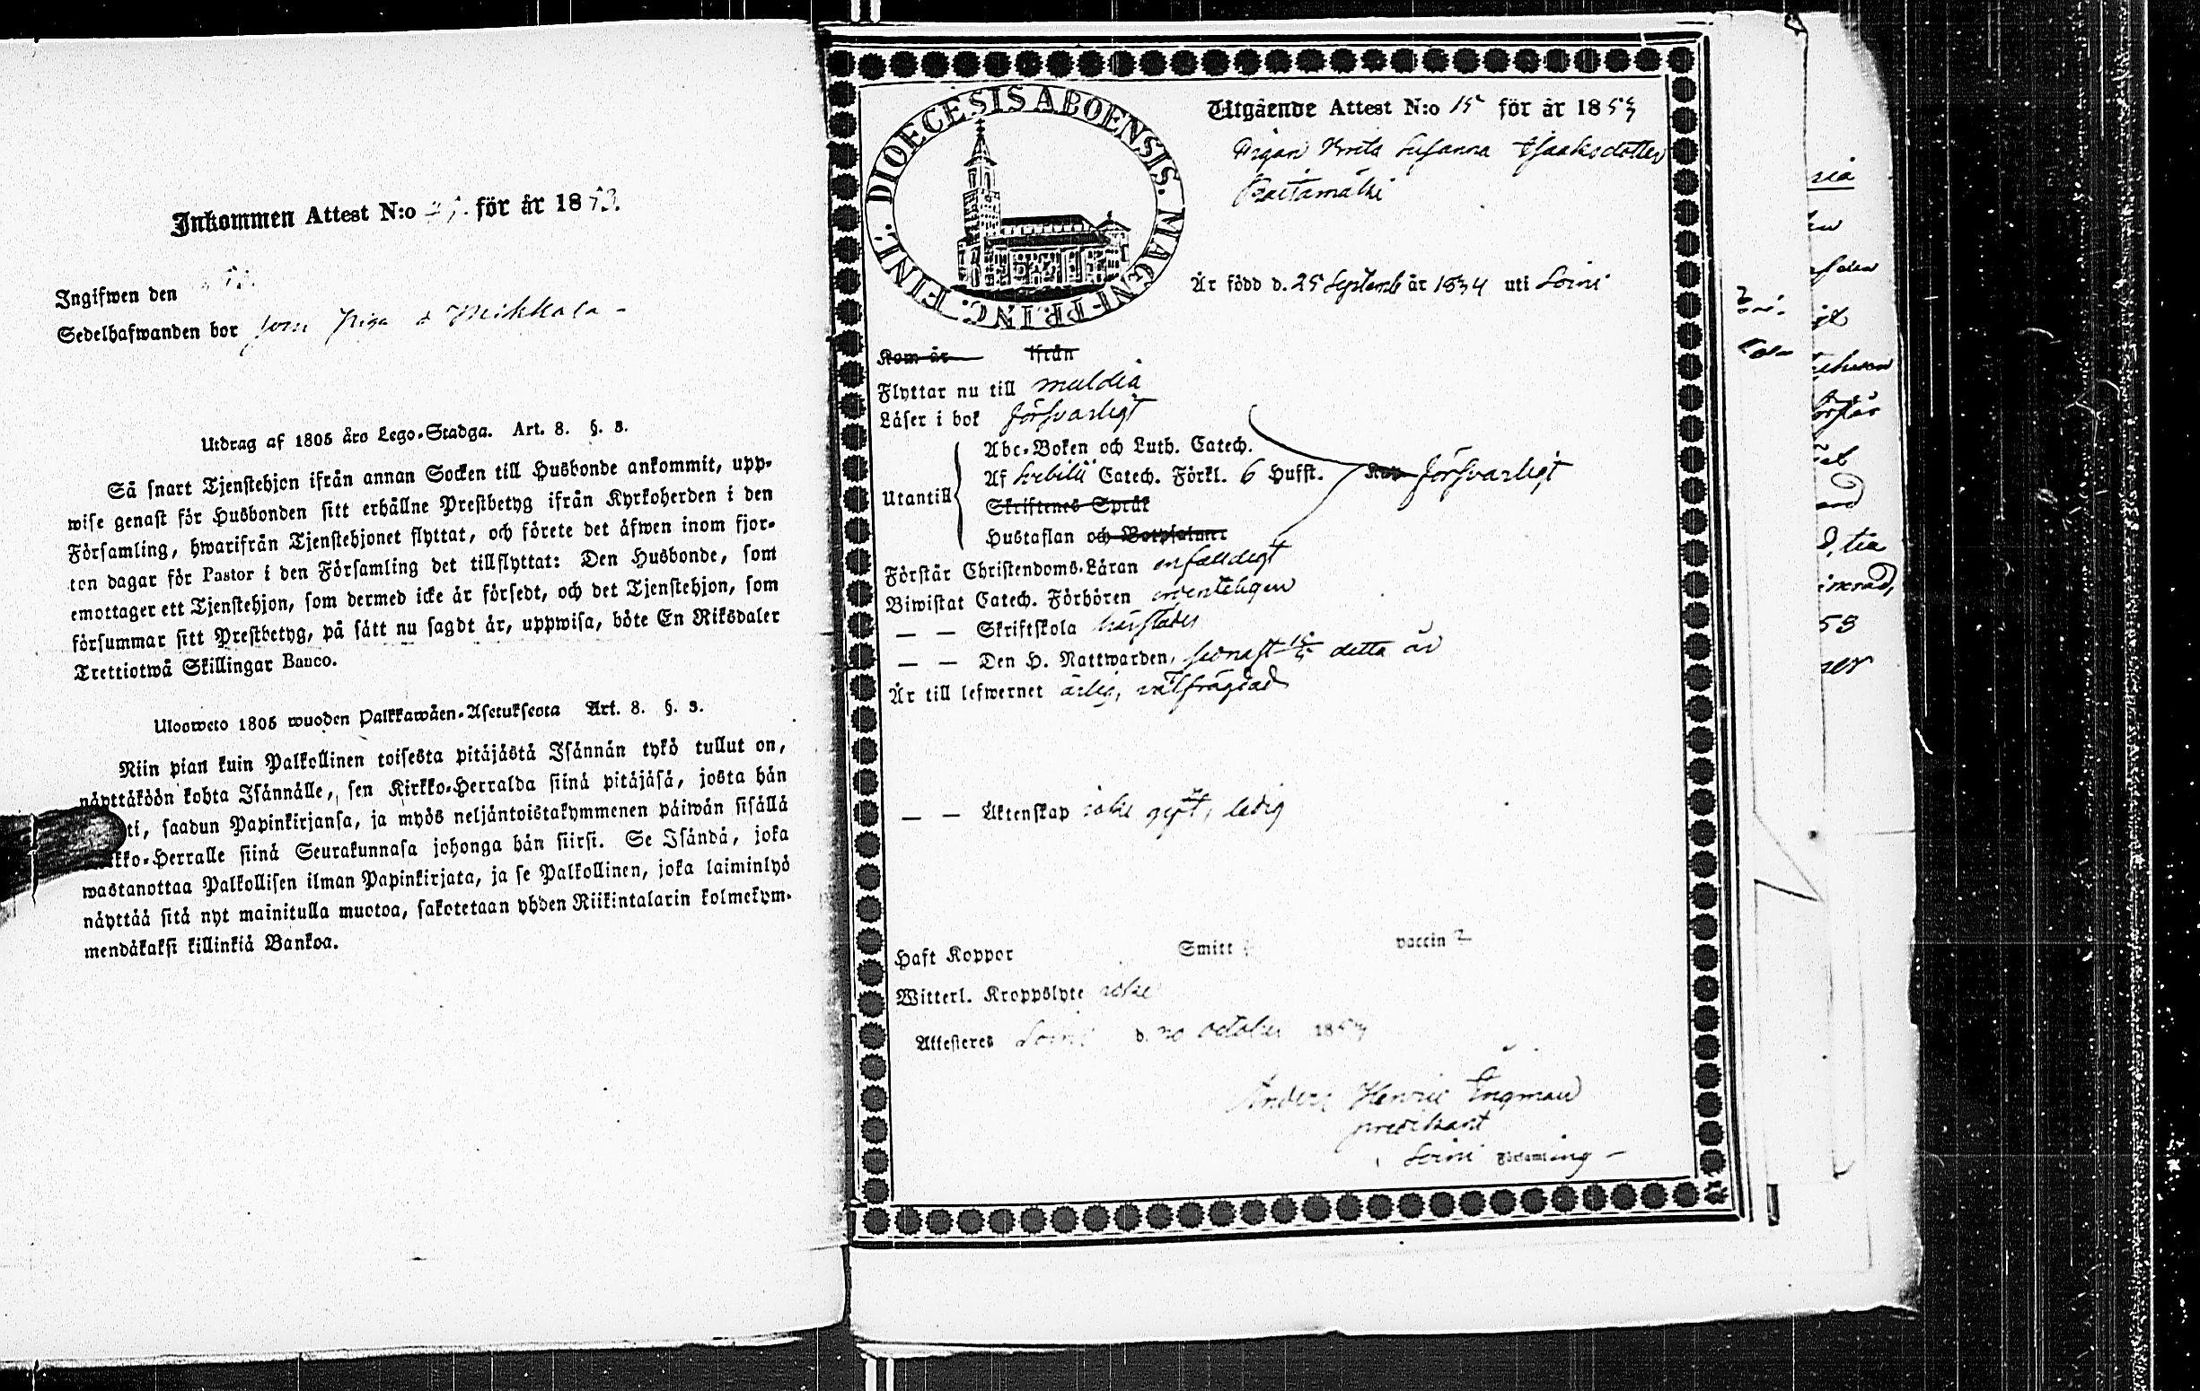 Inkommen Attest N:o för år 1853.
Ingifwen den
Sedelhafwanden bor som Piga å Mikkola -
Utdrag af 1805 års Lego-Stadga. Art. 8. §. 3.
Så snart Tjenstehjon ifrån annan Socken till Husbonde ankommit, upp-
wise genast för Husbonden sitt erhållne Prestbetyg ifrån Kyrkoherden i den
Församling, hwarifrån Tjenstehjonet flyttat, och förete det äfwen inom fjor-
ton dagar för Pastor i den Församling det tillflyttat: Den Husbonde, som
emottager ett Tjenstehjon, som dermed icke är försedt, och det Tjenstehjon, som
försummar sitt Prestbetyg, på sätt nu sagdt är, uppwisa, böte En Riksdaler
Trettiotwå Skillingar Banco.
Ulosweto 1805 wuoden Palkkawäen-Asetuksesta Art. 8. §. 3.
Niin pian kuin Palkollinen toisesta pitäjästä Isännän tykö tullut on,
näyttäköön kohta Isännälle, sen Kirkko-Herralda siinä pitäjäsä, josta hän
ti, saadun Papinkirjansa, ja myös neljäntoistakymmenen päiwän sisällä
kko-Herralle siinä Seurakunnasa johonga hän siirsi. Se Isändä, joka
wastanottaa Palkollisen ilman Papinkirjata, ja se Palkollinen, joka laiminlyö
näyttää sitä nyt mainitulla muotoa, sakotetaan yhden Riikintalarin kolmekym-
mendäkaksi killinkiä Bankoa.
DIOECESIS ABOENSIS. MAGNI PRINC. FINL.
Utgående Attest N:o 15 för år 1853
Pigan Brita Susanna Isaksdotter
Är född d. 25 September år 1834 uti Soini
Kom år ifrån
Flyttar nu till Muldia
Läser i bok försvarligt
Utantill
Abc-Boken och Luth. Catech.
Af Svebilii Catech. Förkl. 6 Hufst. försvarligt
Skriftenes Språk
Hustaflan och Botpsalmer
Förstår Christendoms-Läran enfaldigt
Biwistat Catech. Förhören ordenteligen
— — Skriftskola härstädes
— — Den H. Nattwarden, senast detta år
Är till lefwernet ärlig, välfrägdad
— — Äktenskap icke gift, ledig
Haft Koppor Smitt vaccin 2
Witterl. Kroppslyte icke
Attesteres Soini d. 20 October 1853
Anders Henric Engman
predikant
i Soini Församling -